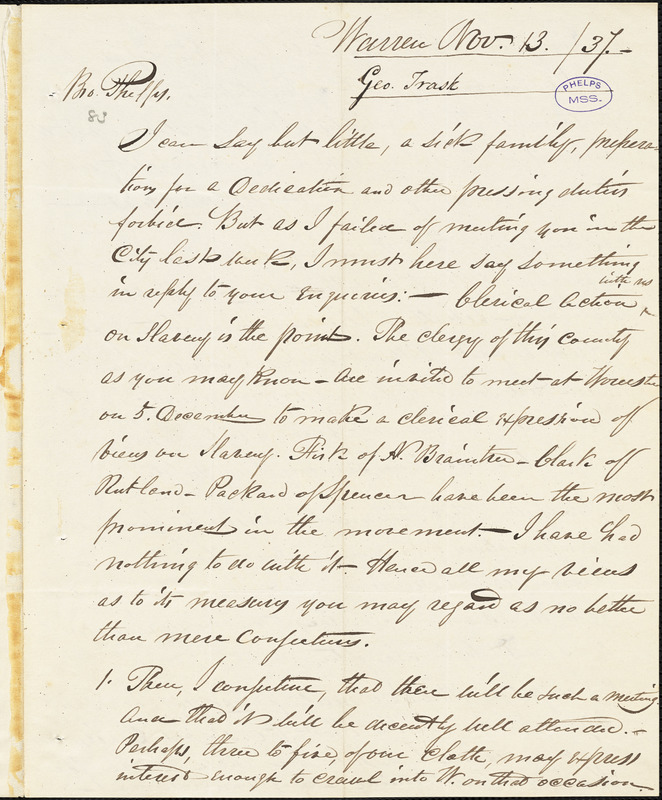 Warren Nov. 13. /37.-
Geo. Trask
PHELPS
MSS.
Bro. Phelps,
I can say but little, a sick family, prepera-
tions for a Dedication and other pressing duties
forbid. But as I failed of meeting you in the
City last week, I must here say something
with us
in reply to your Enquiries: - Clerical Action ^
on Slavery is the point. The clergy of this County
as you may know - are invited to meet at Worcester
on 5. December to make a clerical expression of
views on Slavery. Fisk of N. Braintree - Clark of
Rutland - Packard of Spencer have been the most
prominent in the movement. - I have had
nothing to do with it - Hence all my views
as to its measures you may regard as no better
than mere Conjectures.
1. Then, I conjecture, that there will be such a meeting
And that it will be decently well attended. -
Perhaps, three to five, of our Cloth, may express
interest enough to crawl into W. on that occasion.